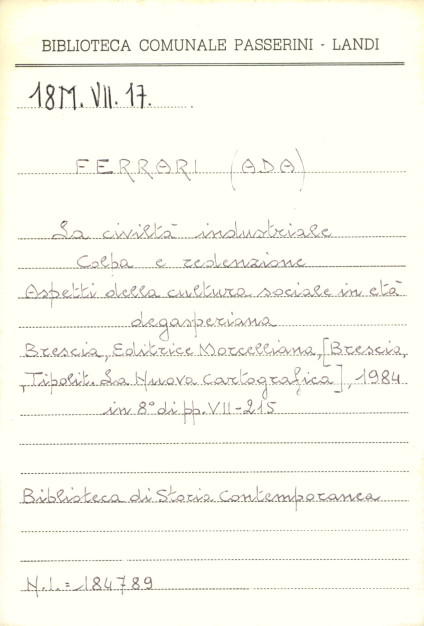 BIBLIOTECA COMUNALE PASSERINI - LANDI
18M. VII. 17.
FERRARI (ADA)
La civiltà industriale
Colpa e redenzione
Aspetti della cultura sociale in età
degasperiana
Brescia, Editrice Morcelliana, [Brescia,
Tipolit. La Nuova Cartografica], 1984
in 8° di pp. VII-215
Biblioteca di Storia Contemporanea
N.I. = 184789